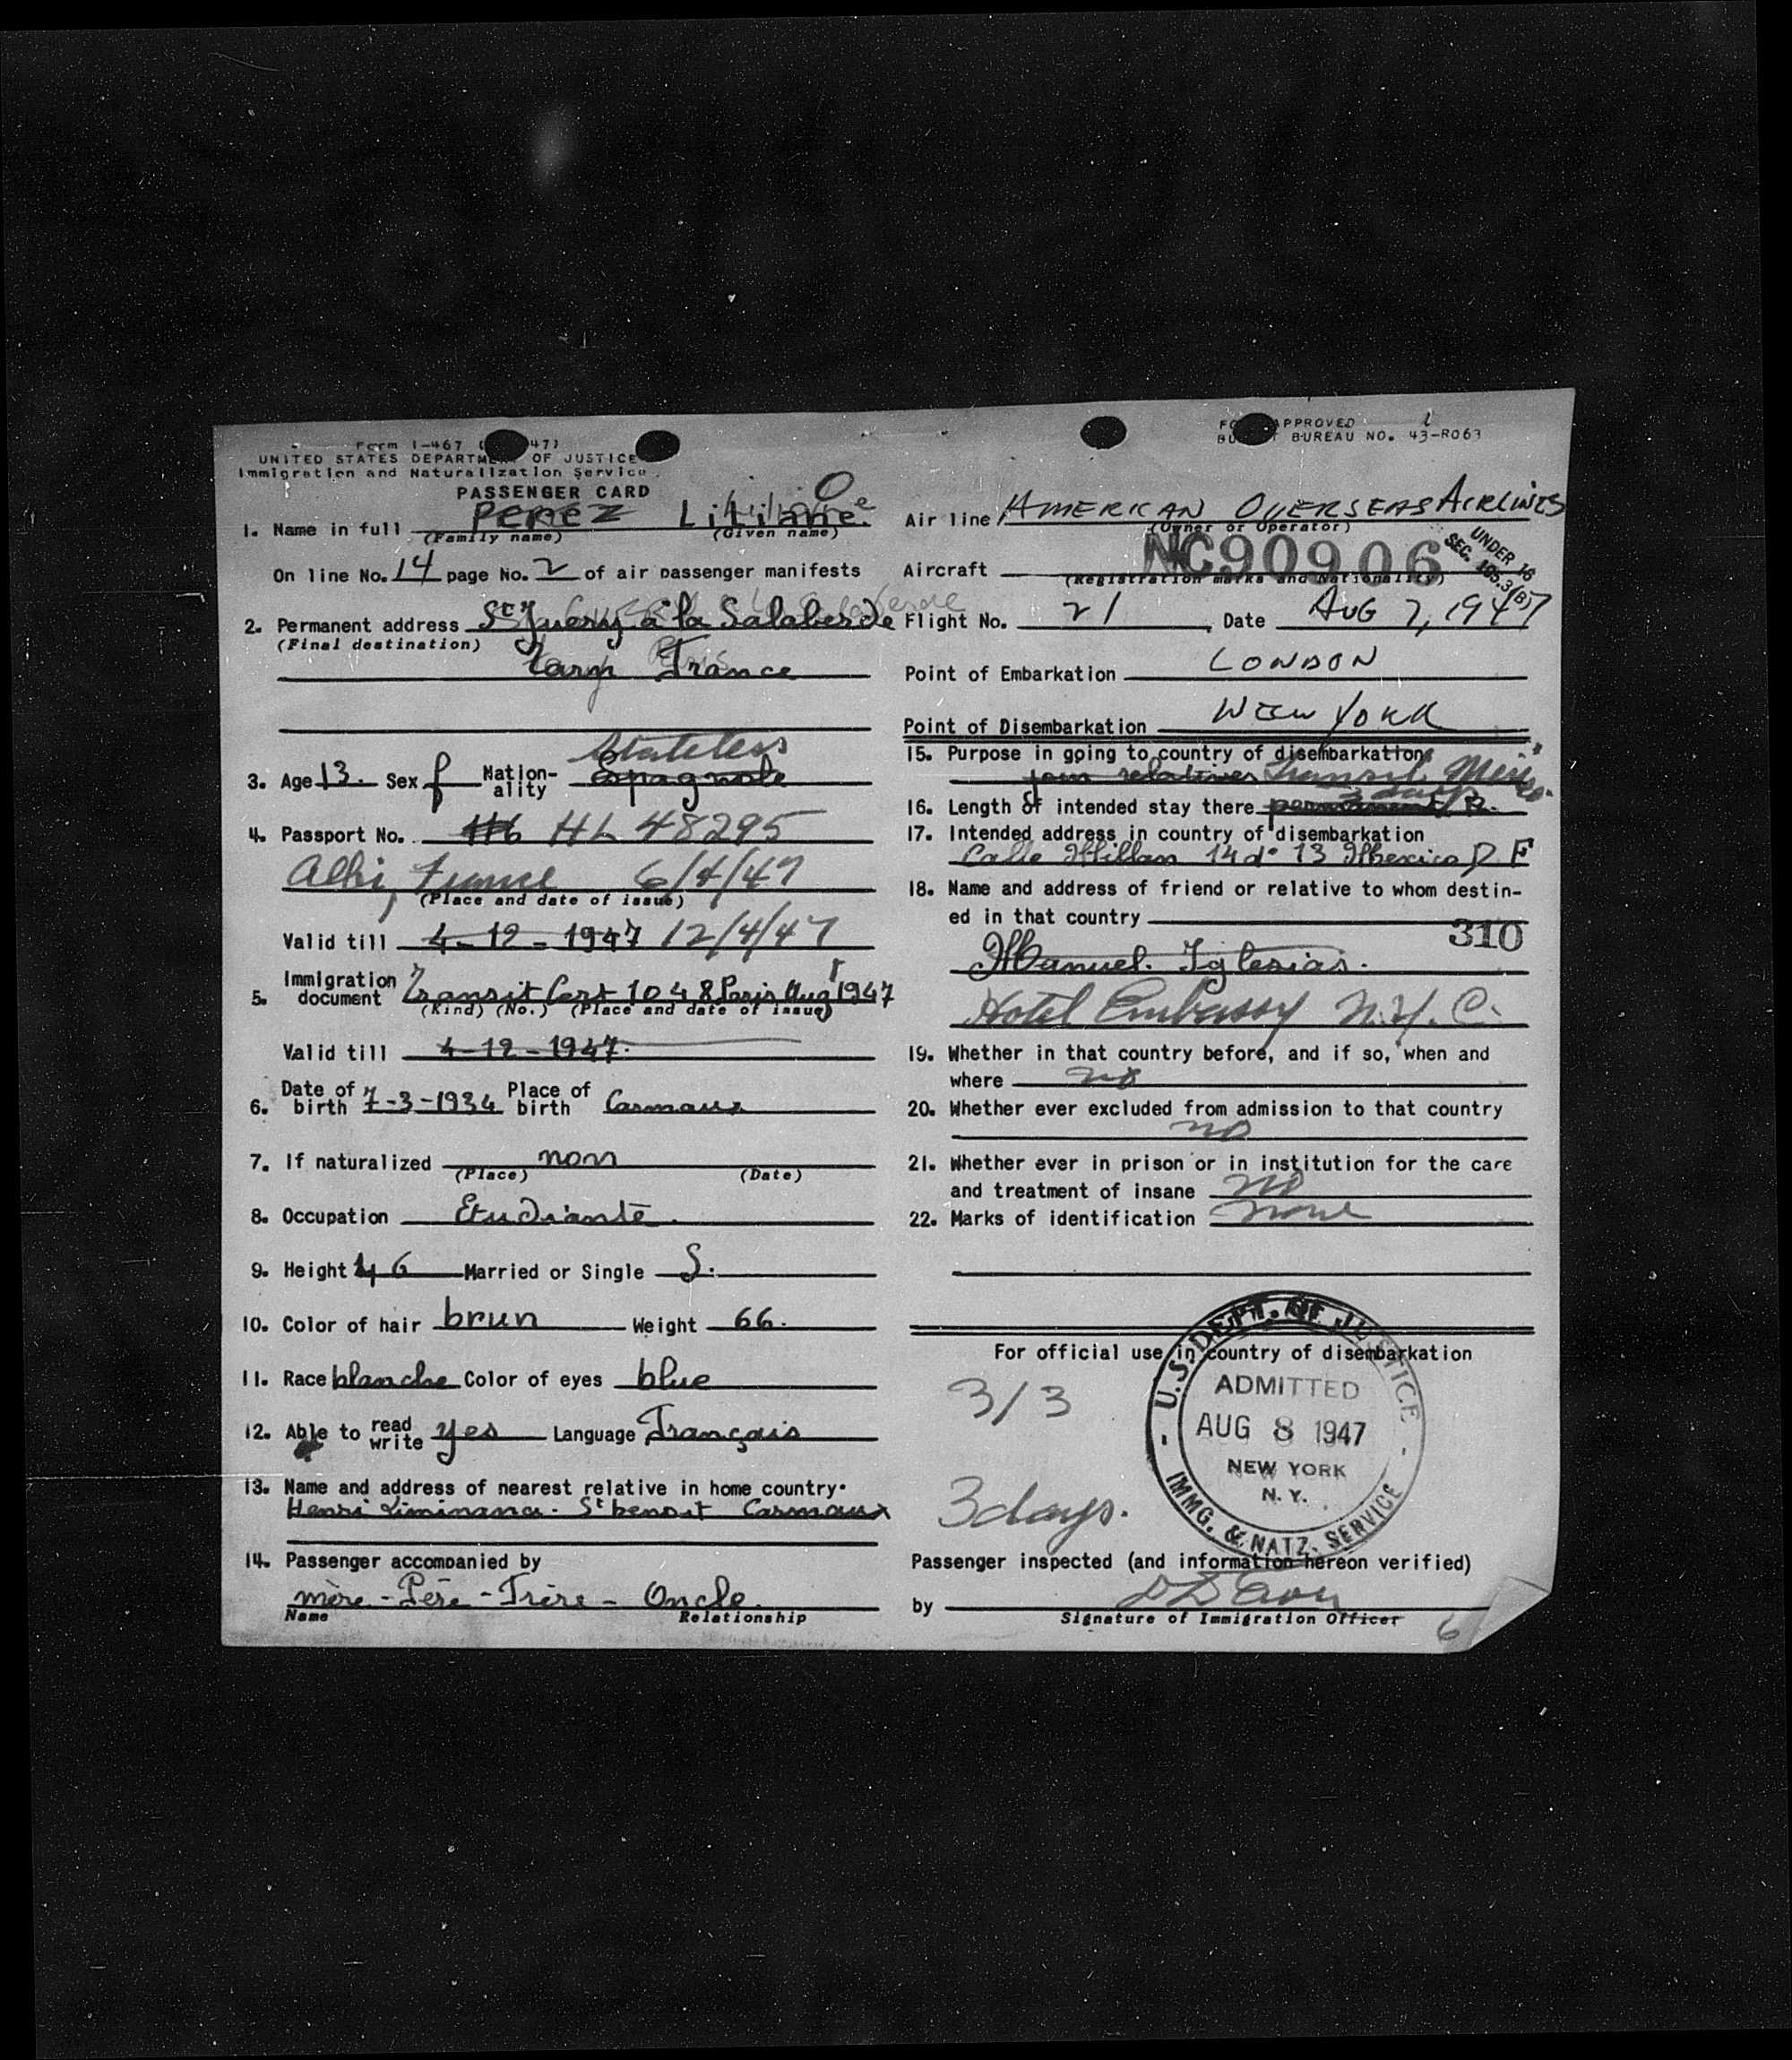 Form I-467 47)
UNITED STATES DEPARTMENT OF JUSTICE
Immigration and Naturalization Service
PASSENGER CARD
1. Name in full Perez Liliane
(Family name) (Given name)
On line No. 14 page No. 2 of air passenger manifests
2. Permanent address St Juery à la Salaberde
(Final destination)
Tarn France
Stateless
3. Age 13. Sex f Nation-ality Espagnole
4. Passport No. HL 48295
Albi, France 6/4/47
(Place and date of issue)
Valid till 4-12-1947 12/4/47
5. Immigration document Transit Cert 1048 Paris Aug 1947
(Kind) (No.) (Place and date of issue)
Valid till 4-12-1947.
6. Date of birth 7-3-1934 Place of birth Carmaux
7. If naturalized non
(Place) (Date)
8. Occupation Etudiante.
9. Height 4 6 Married or Single S.
10. Color of hair brun Weight 66.
11. Race blanche Color of eyes blue
12. Able to read write yes Language Français
13. Name and address of nearest relative in home country.
Henri Liminana - St benoit Carmaux
14. Passenger accompanied by
mère - Père - Frère - Oncle.
Name Relationship
APPROVED
BUREAU NO. 43-R063
Air line AMERICAN OVERSEAS AIRLINES
(Owner or Operator)
UNDER 16
SEC. 195.3(B)
Aircraft NC90906
(Registration marks and Nationality)
Flight No. 21 Date AUG 7, 1947
Point of Embarkation LONDON
Point of Disembarkation NEW YORK
15. Purpose in going to country of disembarkation
join relatives transit Mexico.
16. Length of intended stay there permanent 3 days
17. Intended address in country of disembarkation
Calle Millan 14 d. 13 Mexico D F
18. Name and address of friend or relative to whom destin-
ed in that country
310
Manuel Iglesias.
Hotel Embassy N.Y.C.
19. Whether in that country before, and if so, when and
where no
20. Whether ever excluded from admission to that country
no
21. Whether ever in prison or in institution for the care
and treatment of insane no
22. Marks of identification none
For official use in country of disembarkation
3/3
3 days.
U.S. DEPT. OF JUSTICE
ADMITTED
AUG 8 1947
NEW YORK
N. Y.
IMMG. & NATZ. SERVICE
Passenger inspected (and information hereon verified)
by
Signature of Immigration Officer
6